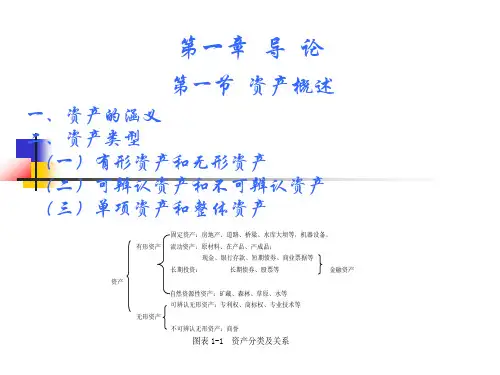 第一章 导 论
第一节 资产概述
一、资产的涵义
二、资产类型
（一）有形资产和无形资产
（二）可辨认资产和不可辨认资产
（三）单项资产和整体资产
固定资产：房地产、道路、桥梁、水库大坝等，机器设备。
有形资产
流动资产：原材料、在产品、产成品；
现金、银行存款、短期债券、商业票据等
长期投资： 长期债券、股票等 金融资产
资产
自然资源性资产：矿藏、森林、草原、水等
可辨认无形资产：专利权、商标权、专业技术等
无形资产
不可辨认无形资产：商誉
图表1-1 资产分类及关系